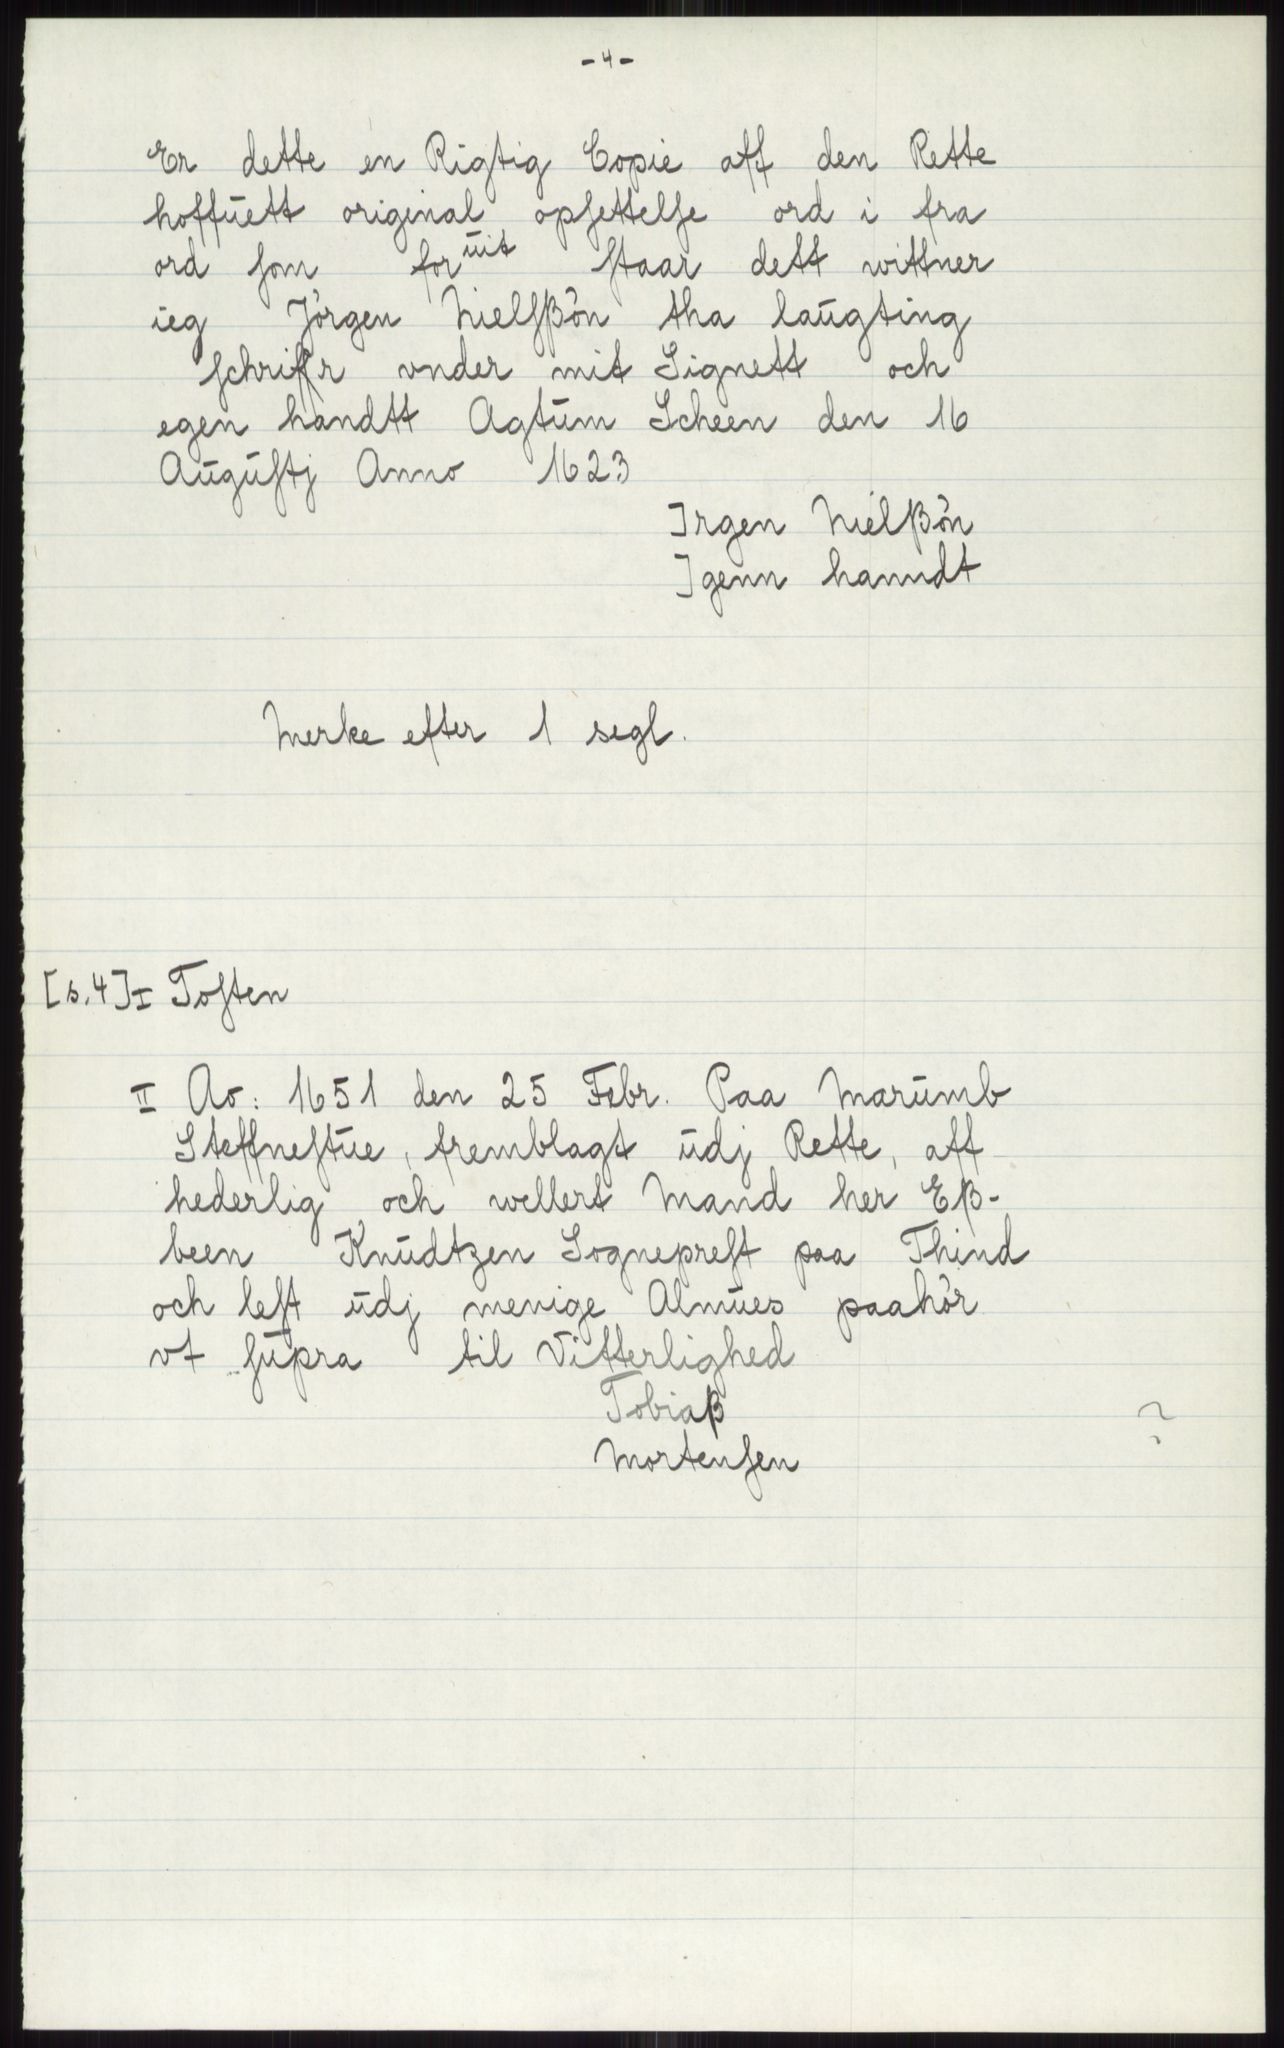 -4-
Er dette en Rigtig Copie aff den Rette
hoffuett original opsettelse ord i fra
ord som foruit staar dett wittner
ieg Jörgen Nielsßön tha laugting
schriffr vnder mit Signett och
egen handtt Agtum Scheen den 16
Augustj Anno 1623
Jrgen Nielßön
Jgenn hanndt
Merke efter 1 segl.
[s.4] I Toften
II Ao: 1651 den 25 Febr. Paa Marumb
Steffnestue, fremblagt udj Rette, aff
hederlig och wellert Mand her Eß-
been Knudtzen Sogneprest paa Thind
och lest udj menige Almues paahör
vt supra til Vitterlighed
Tobiaß
Mortensen
?